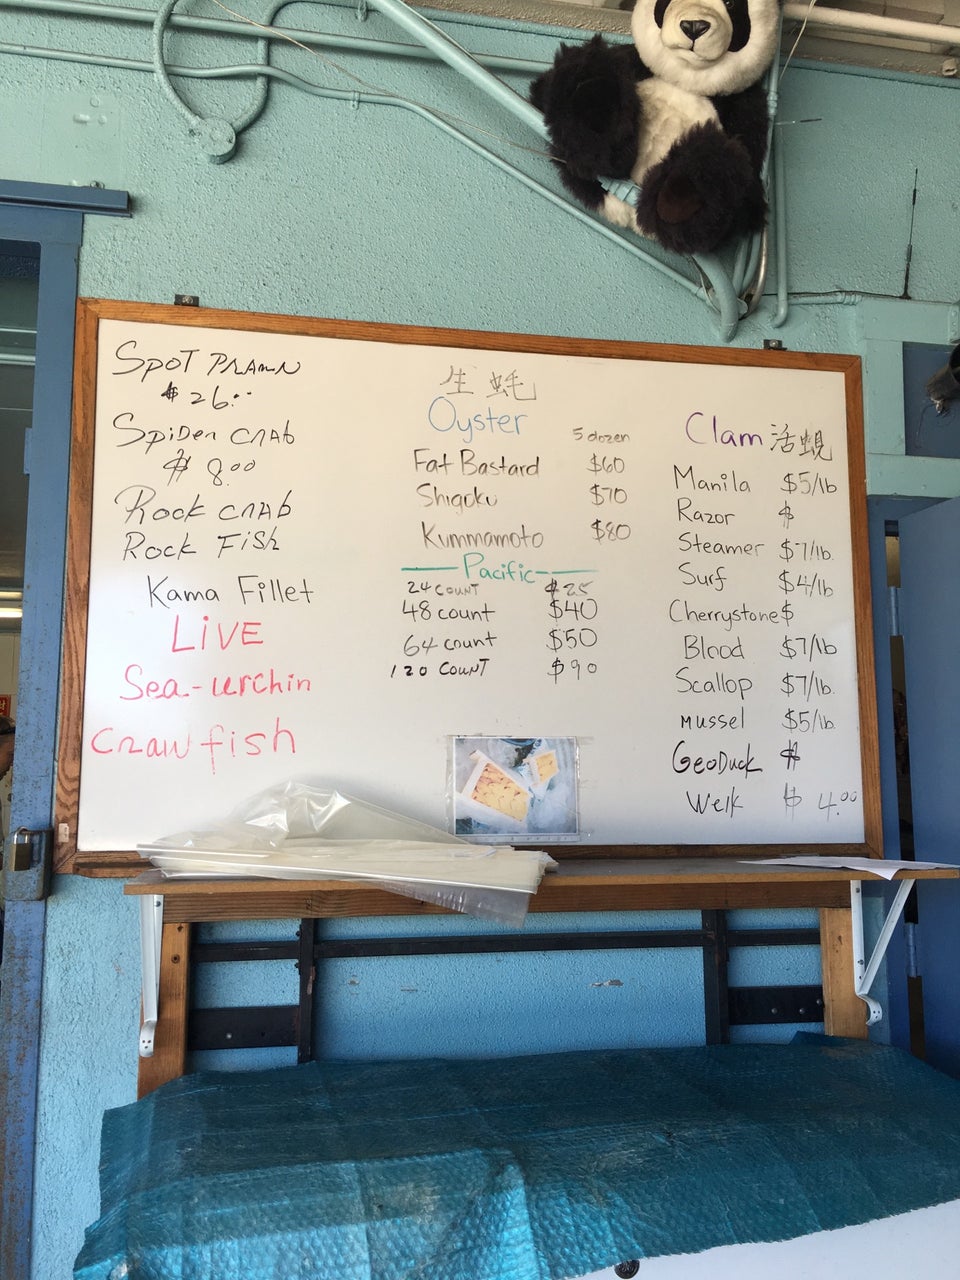 SPOT PRAWN
$26.00
SpiDer CRAb
$8.00
Rock CRAb
ROCK FiSh
Kama Fillet
LiVE
Sea-urchin
CRAWfish
生蚝
Oyster
5 dozen
Fat Bastard $60
Shigoku $70
Kummamoto $80
Pacific
24 COUNT $25
48 count $40
64 count $50
120 COUNT $90
Clam 活蜆
Manila $5/lb
Razor $
Steamer $7/lb.
Surf $4/lb
Cherrystone $
Blood $7/lb
Scallop $7/lb.
mussel $5/lb.
GeoDuck $
Welk $4.00